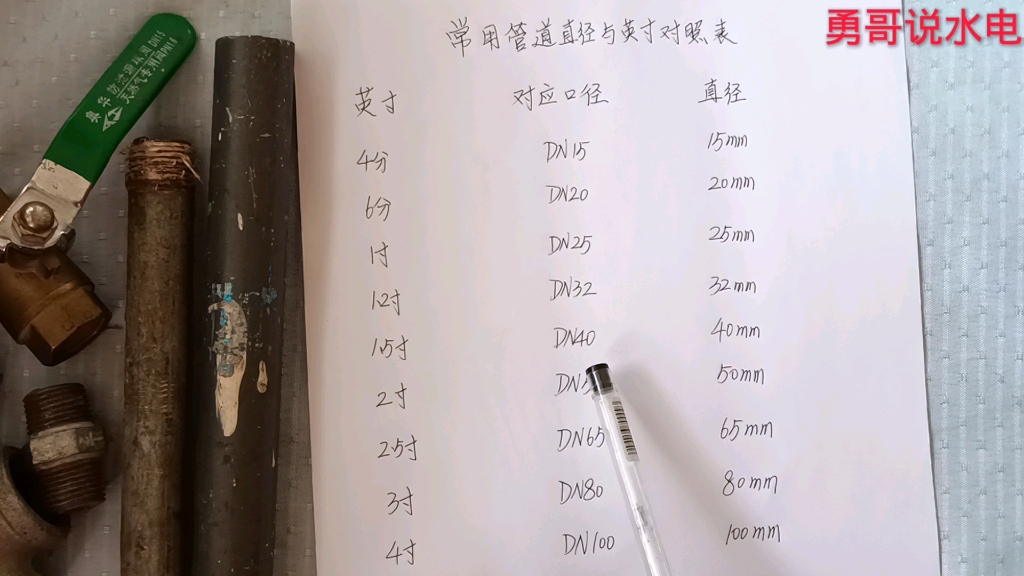 勇哥说水电
常用管道直径与英寸对照表
英寸 对应口径 直径
4分 DN15 15mm
6分 DN20 20mm
1寸 DN25 25mm
1.2寸 DN32 32mm
1.5寸 DN40 40mm
2寸 DN5 50mm
2.5寸 DN65 65mm
3寸 DN80 80mm
4寸 DN100 100mm